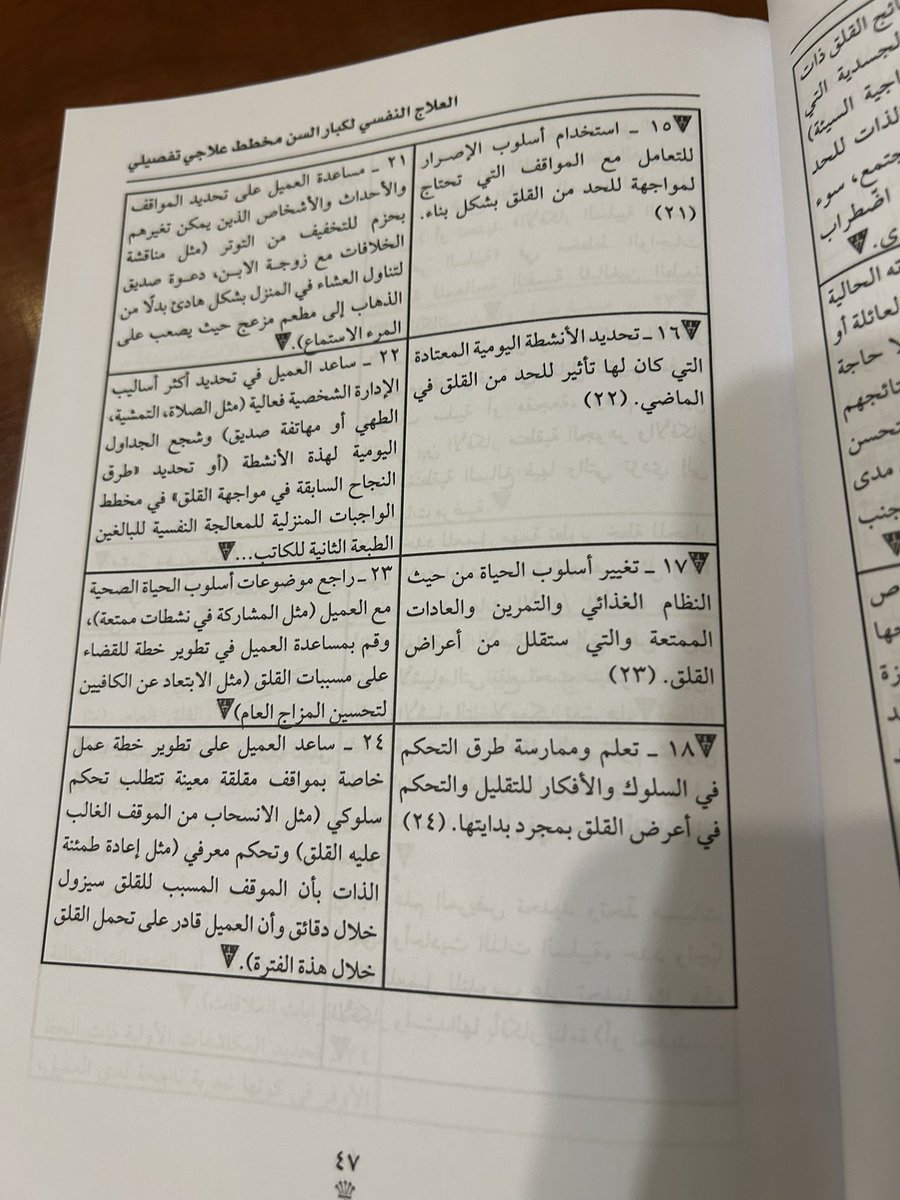 العلاج النفسي لكبار السن مخطط علاجي تفصيلي
١٥ ـ استخدام أسلوب الإصرار
للتعامل مع المواقف التي تحتاج
لمواجهة للحد من القلق بشكل بناء.
(٢١)
٢١ ـ مساعدة العميل على تحديد المواقف
والأحداث والأشخاص الذين يمكن تغيرهم
بحزم للتخفيف من التوتر (مثل مناقشة
الخلافات مع زوجة الابن، دعوة صديق
لتناول العشاء في المنزل بشكل هادئ بدلًا من
الذهاب إلى مطعم مزعج حيث يصعب على
المرء الاستماع).
١٦ ـ تحديد الأنشطة اليومية المعتادة
التي كان لها تأثير للحد من القلق في
الماضي. (٢٢)
٢٢ ـ ساعد العميل في تحديد أكثر أساليب
الإدارة الشخصية فعالية (مثل الصلاة، التمشية،
الطهي أو مهاتفة صديق) وشجع الجداول
اليومية لهذة الأنشطة (أو تحديد «طرق
النجاح السابقة في مواجهة القلق» في مخطط
الواجبات المنزلية للمعالجة النفسية للبالغين
الطبعة الثانية للكاتب...
١٧ ـ تغيير أسلوب الحياة من حيث
النظام الغذائي والتمرين والعادات
الممتعة والتي ستقلل من أعراض
القلق. (٢٣)
٢٣ ـ راجع موضوعات أسلوب الحياة الصحية
مع العميل (مثل المشاركة في نشطات ممتعة)،
وقم بمساعدة العميل في تطوير خطة للقضاء
على مسببات القلق (مثل الابتعاد عن الكافيين
لتحسين المزاج العام)
١٨ ـ تعلم وممارسة طرق التحكم
في السلوك والأفكار للتقليل والتحكم
في أعرض القلق بمجرد بدايتها. (٢٤)
٢٤ ـ ساعد العميل على تطوير خطة عمل
خاصة بمواقف مقلقة معينة تتطلب تحكم
سلوكي (مثل الانسحاب من الموقف الغالب
عليه القلق) وتحكم معرفي (مثل إعادة طمئنة
الذات بأن الموقف المسبب للقلق سيزول
خلال دقائق وأن العميل قادر على تحمل القلق
خلال هذة الفترة).
٤٧
ئج القلق ذات
لجسدية التي
اجية السيئة)
لذات للحد
جتمع، سوء
اضطراب
ى.
ته الحالية
لعائلة أو
لا حاجة
تائجهم
تحسن
مدى
جنب